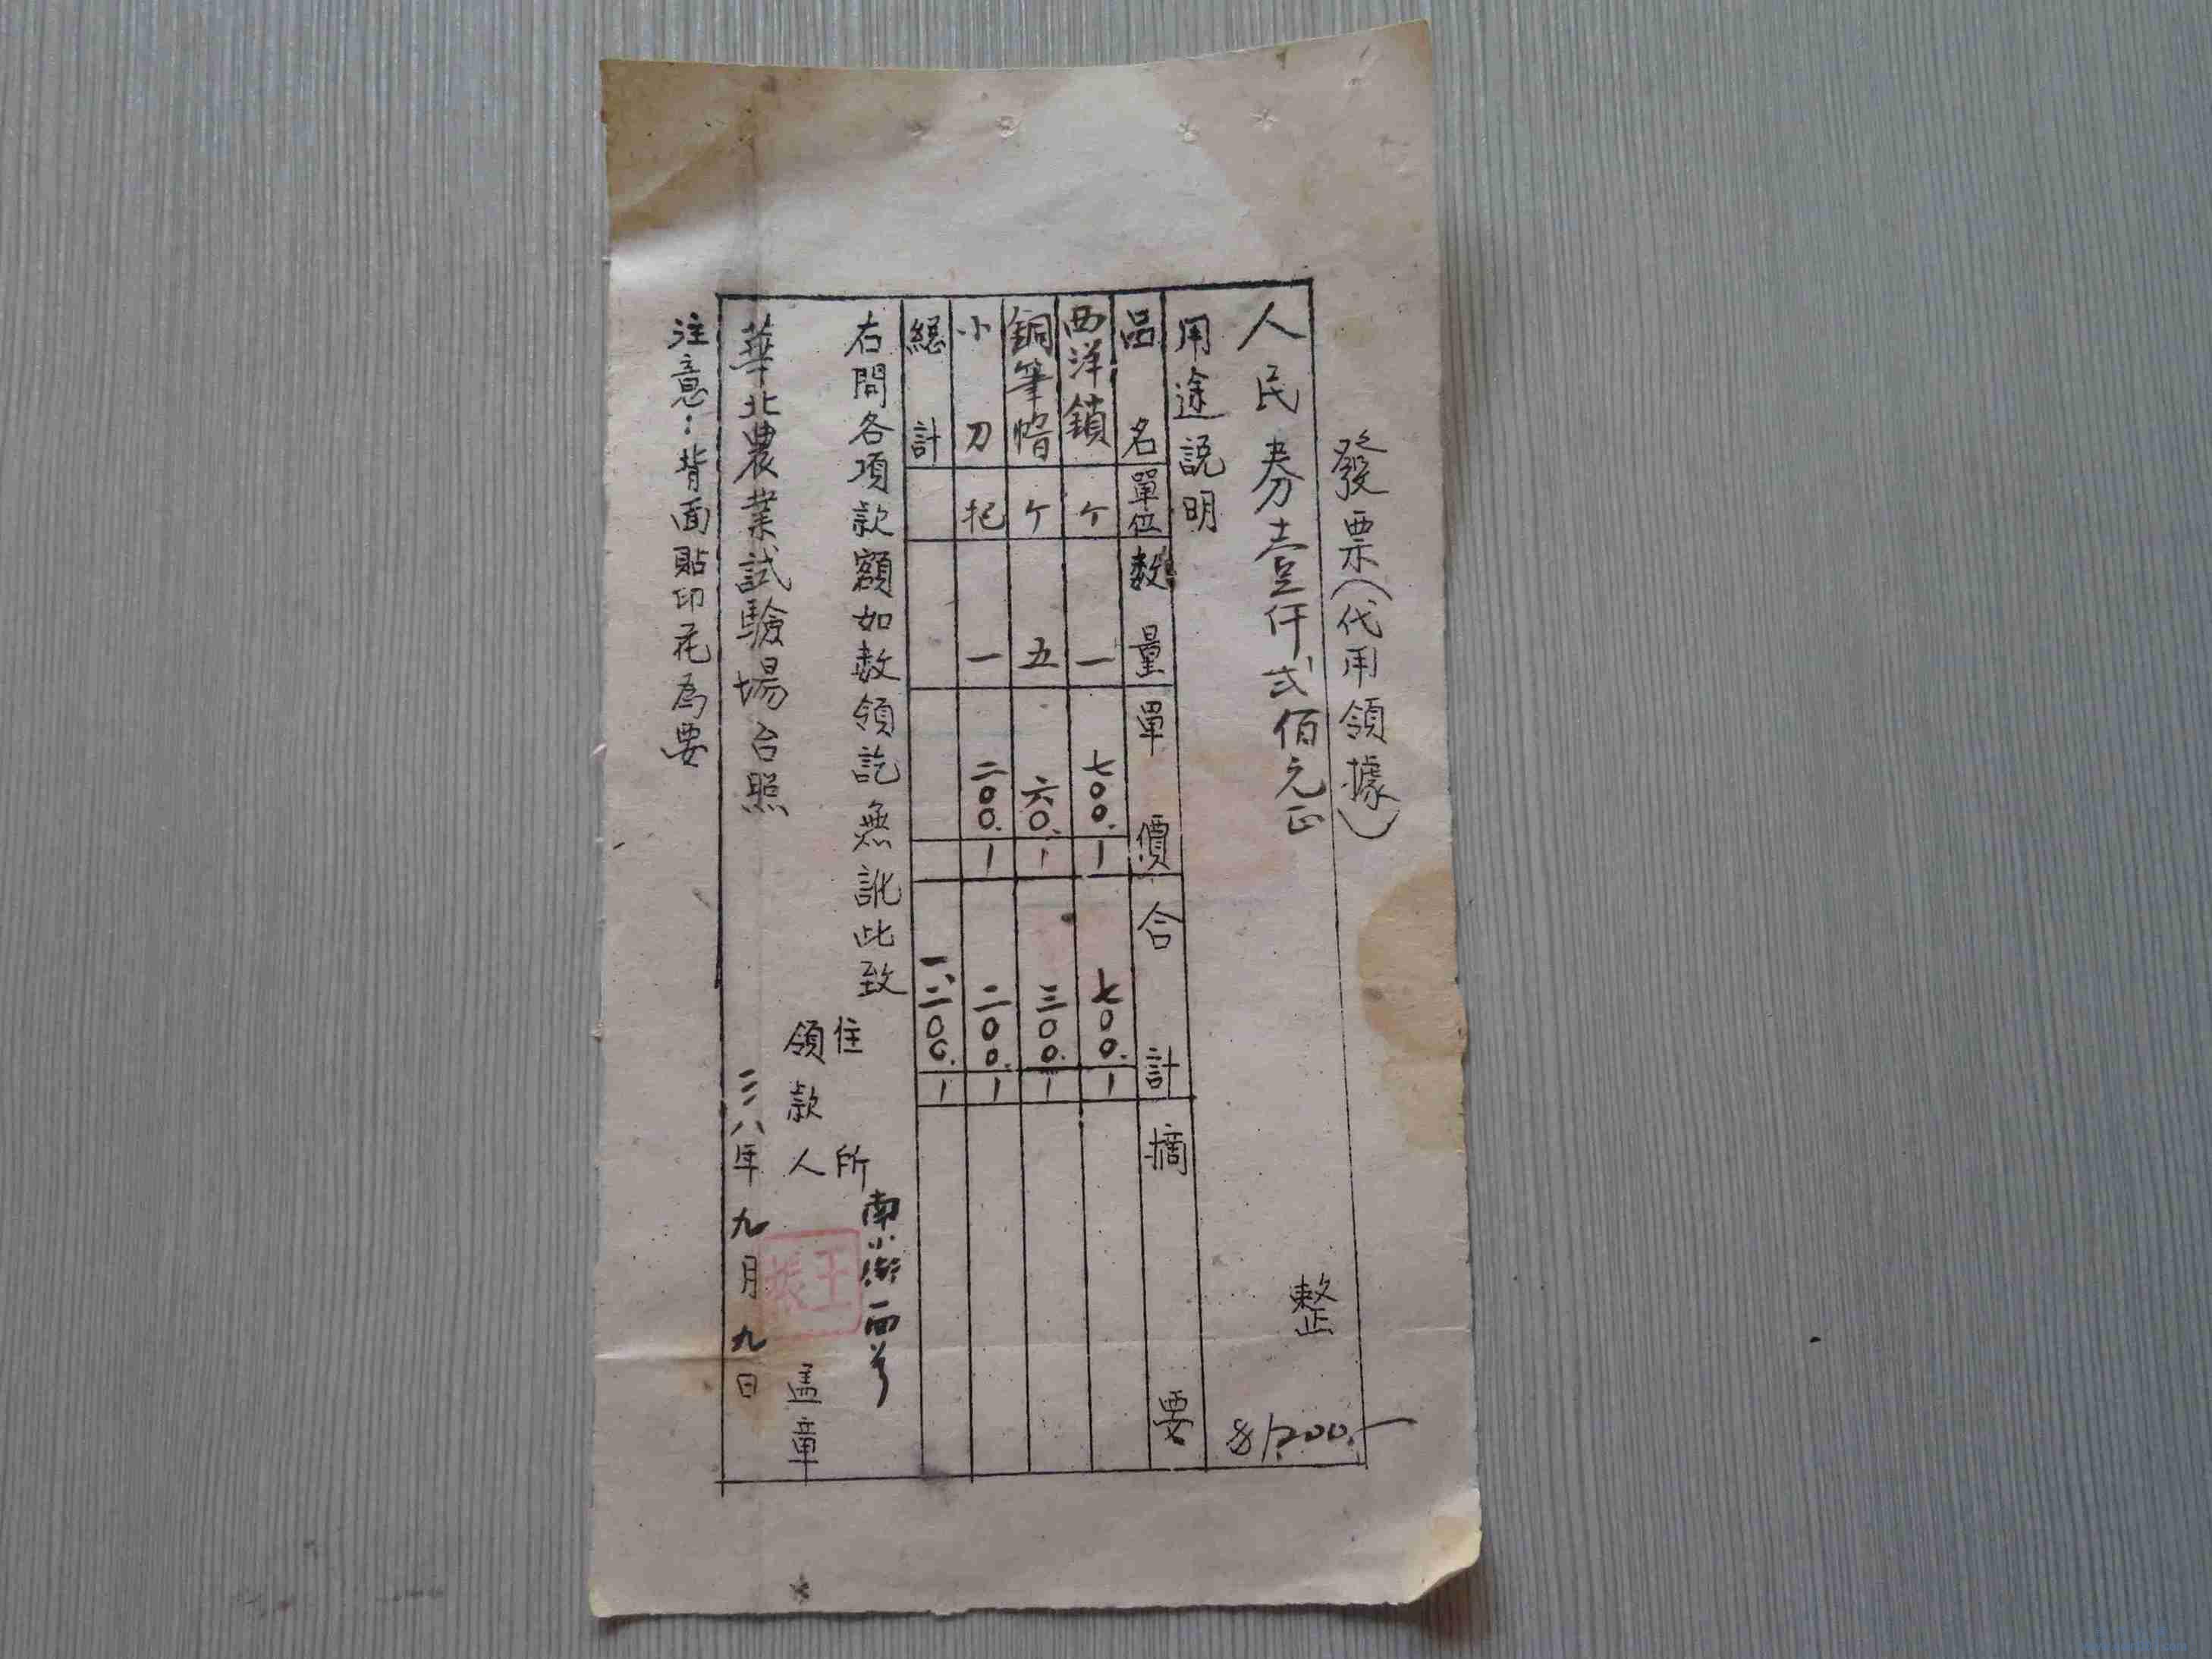 發票(代用領據)
人民券壹仟弍佰元正 整
$1200.-
用途説明
品名 單位 数量 單價 合計 摘要
西洋鎖 ケ 一 七〇〇. 1 七〇〇. 1
銅筆帽 ケ 五 六〇. 1 三〇〇. 1
小刀 把 一 二〇〇. 1 二〇〇. 1
總計 一、二〇〇. 1
右開各項款額如数領訖無訛此致
住所 南小街
領款人 王振 盖章
華北農業試驗場台照
三八年九月九日
注意:背面貼印花為要